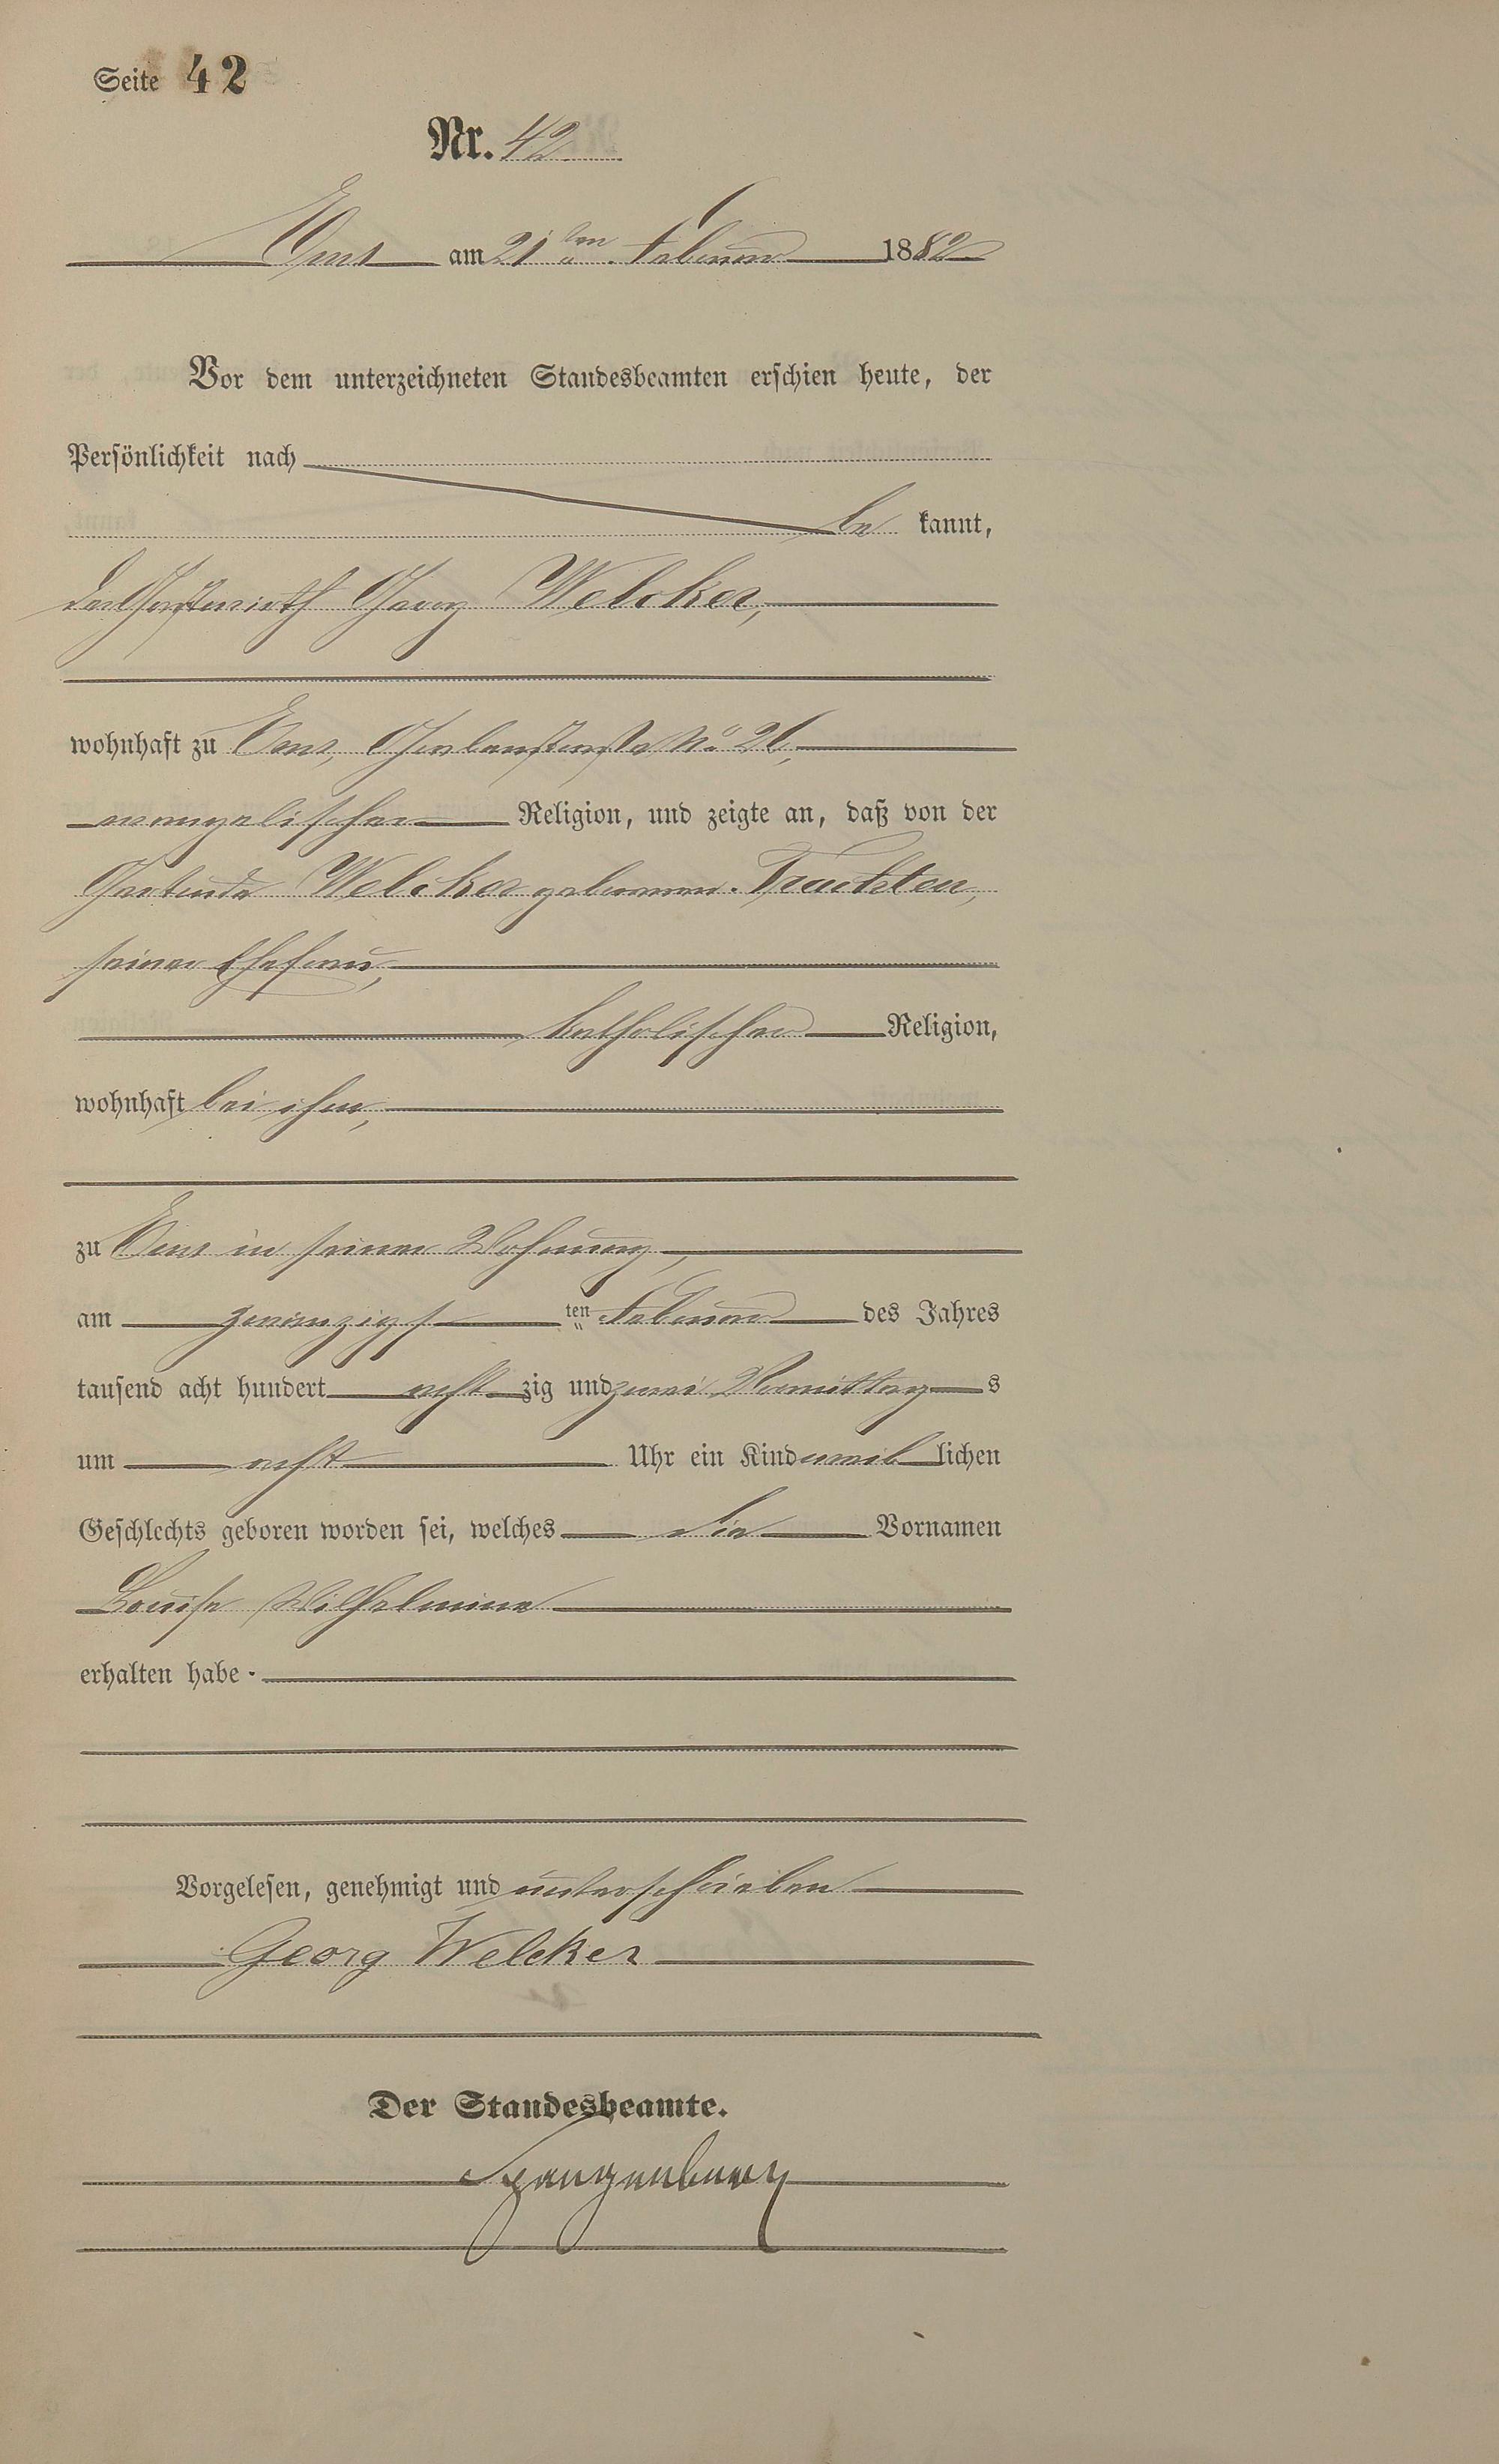 Seite 42
Nr. 42
Ems am 21ten Februar 1882
Vor dem unterzeichneten Standesbeamten erschien heute, der
Persönlichkeit nach
be kannt,
der Gastwirth Georg Welcker,
wohnhaft zu Ems, No. 26,
evangelischer Religion, und zeigte an, daß von der
Gertrude Welcker geborenen
seiner Ehefrau,
katholischer Religion,
wohnhaft bei ihm,
zu Ems in seiner Wohnung,
am zwanzigst ten Februar des Jahres
tausend acht hundert acht zig und zwei Vormittag s
um acht Uhr ein Kind weib lichen
Geschlechts geboren worden sei, welches die Vornamen
Louise Wilhelmine
erhalten habe.
Vorgelesen, genehmigt und unterschrieben
Georg Welcker
Der Standesbeamte.
Spangenberg